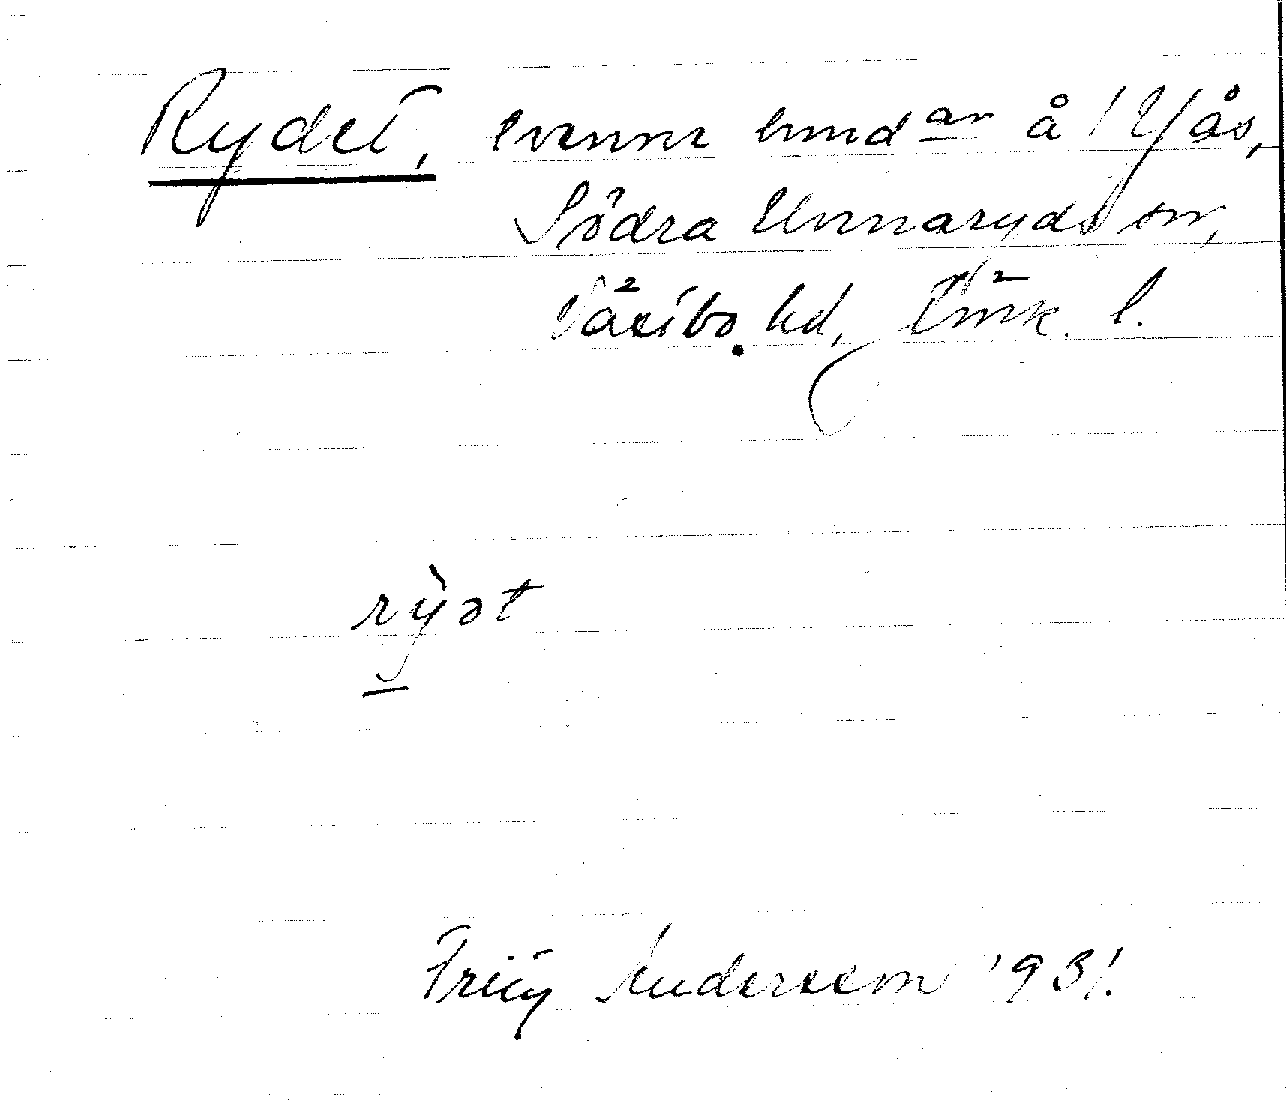 Rydet, tvenne hmd an å 1 Yås,
Södra Unnaryds sn,
Västbo hd, Jönk. l.
rỳət
Frity Andersson 1931.